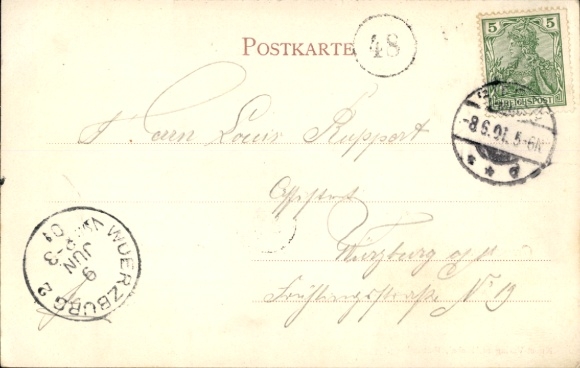 POSTKARTE
48
5 5
REICHSPOST
-8.6.01. 5-6N
Herrn Louis Ruppert
Würzburg a/M
Frühlingsstraße No 19
WUERZBURG 2
9 JUN
01